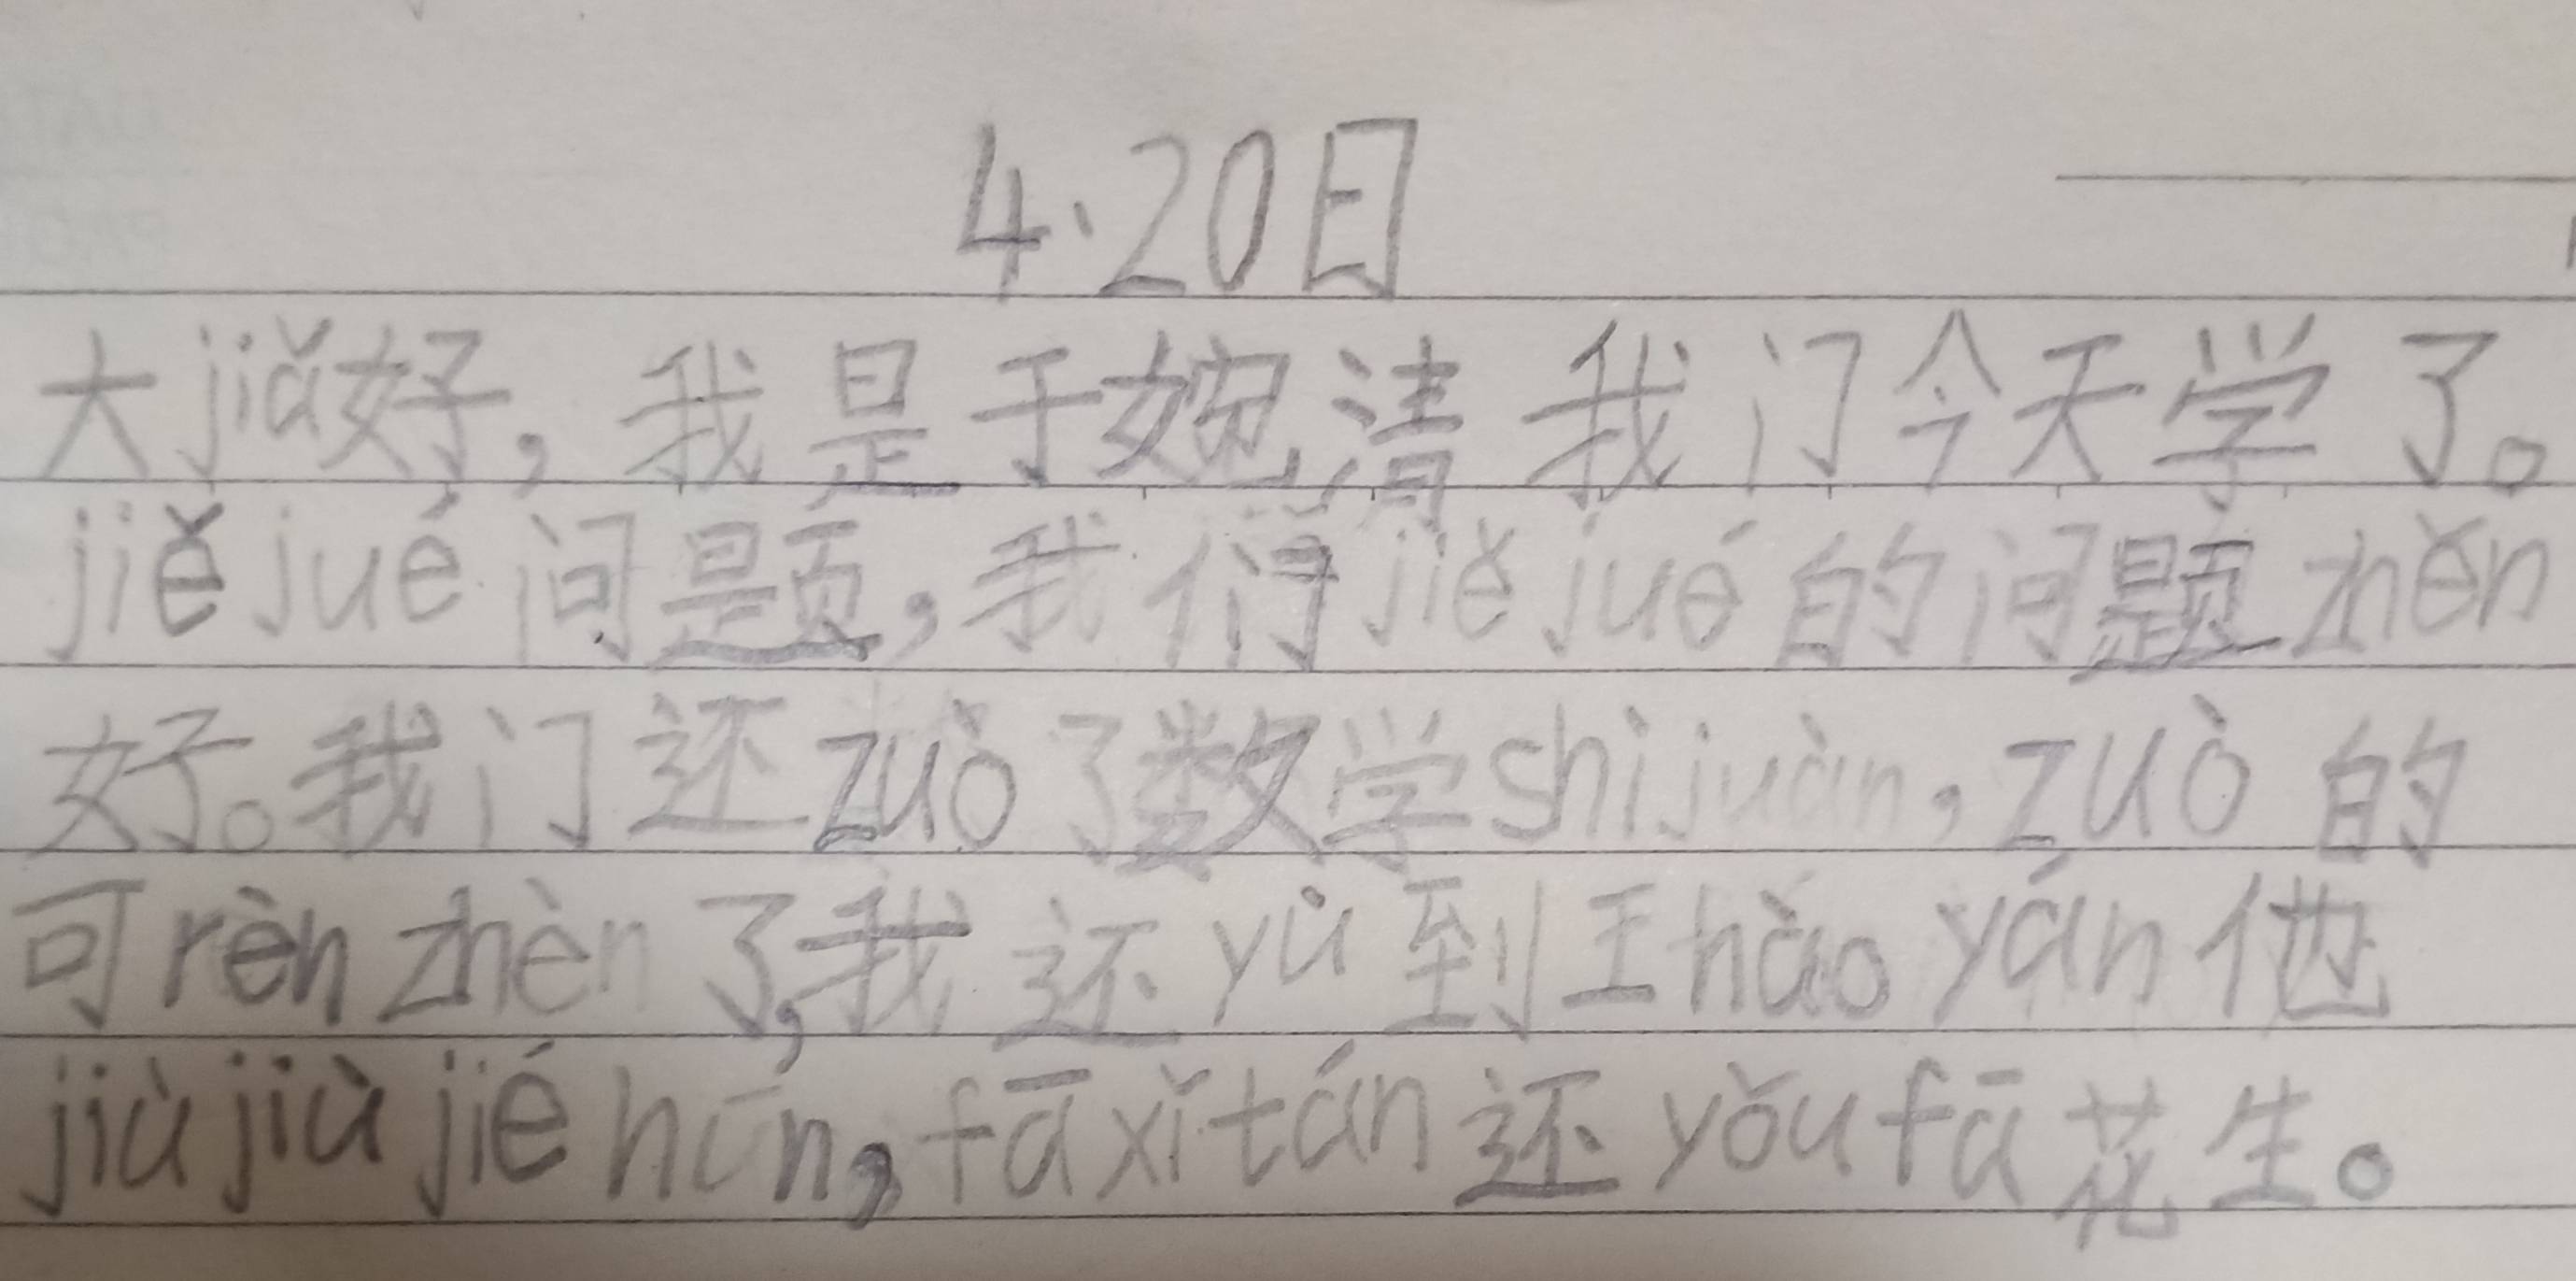 4.20日
大jiǎ好，我是于婉清我门今天学了。
jiě jué问题，我们jiě jué的问题zhěn
好。我门还zuò了数学shìjuàn，zuò的
可rèn zhèn了，我还yù到王hào yán他
jiù jiù jié hūn，fā xǐ tán还yǒu fā花生。